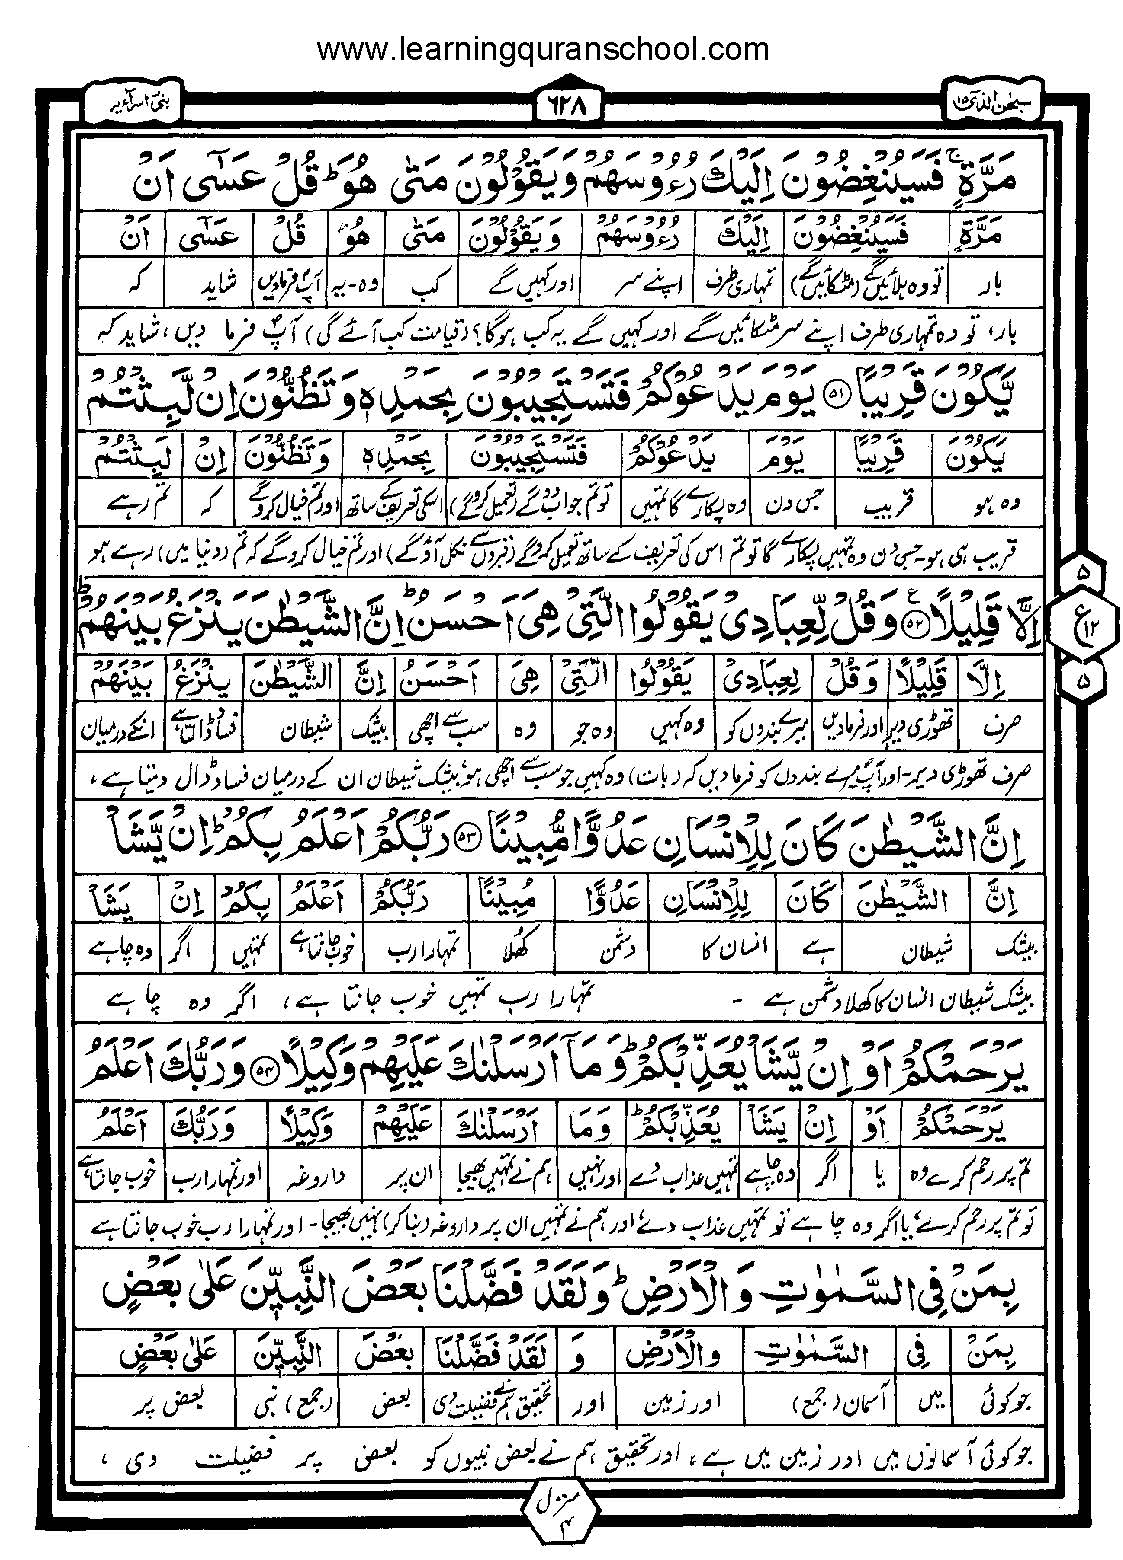 www.learningquranschool.com
سبحٰن الذی ۱۵
۶۲۸
بنیٓ اسرآءیل
مَرَّةٍ ۚ فَسَيُنْغِضُوْنَ اِلَيْكَ رُءُوْسَهُمْ وَيَقُوْلُوْنَ مَتٰى هُوَ ؕ قُلْ عَسٰٓى اَنْ
مَرَّةٍ فَسَيُنْغِضُوْنَ اِلَيْكَ رُءُوْسَهُمْ وَيَقُوْلُوْنَ مَتٰى هُوَ قُلْ عَسٰٓى اَنْ
بار تو وہ ہلائیں گے (مٹکائیں گے) تمہاری طرف اپنے سر اور کہیں گے کب وہ-یہ آپ فرمادیں شاید کہ
بار، تو وہ تمہاری طرف اپنے سر مٹکائیں گے اور کہیں گے یہ کب ہوگا؟ (قیامت کب آئے گی) آپ فرما دیں، شاید کہ
يَّكُوْنَ قَرِيْبًا ۵۱ يَوْمَ يَدْعُوْكُمْ فَتَسْتَجِيْبُوْنَ بِحَمْدِهٖ وَتَظُنُّوْنَ اِنْ لَّبِثْتُمْ
يَكُوْنَ قَرِيْبًا يَوْمَ يَدْعُوْكُمْ فَتَسْتَجِيْبُوْنَ بِحَمْدِهٖ وَتَظُنُّوْنَ اِنْ لَبِثْتُمْ
وہ ہو قریب جس دن وہ پکارے گا تمہیں تو تم جواب دو گے (تعمیل کروگے) اسکی تعریف کے ساتھ اور تم خیال کروگے کہ تم رہے
قریب ہی ہو۔ جس دن وہ تمہیں پکارے گا تو تم اس کی تعریف کے ساتھ تعمیل کروگے (قبروں سے نکل آؤ گے) اور تم خیال کروگے کہ تم (دنیا میں) رہے ہو
۵
ع
۱۲
۵
اِلَّا قَلِيْلًا ۵۲ وَقُلْ لِّعِبَادِىْ يَقُوْلُوا الَّتِىْ هِىَ اَحْسَنُ ؕ اِنَّ الشَّيْطٰنَ يَنْزَغُ بَيْنَهُمْ ؕ
اِلَّا قَلِيْلًا وَقُلْ لِعِبَادِىْ يَقُوْلُوا الَّتِىْ هِىَ اَحْسَنُ اِنَّ الشَّيْطٰنَ يَنْزَغُ بَيْنَهُمْ
صرف تھوڑی دیر اور فرمادیں میرے بندوں کو وہ کہیں وہ جو وہ سب سے اچھی بیشک شیطان فساد ڈالتا ہے انکے درمیان
صرف تھوڑی دیر۔ اور آپ میرے بندوں کو فرمادیں کہ (بات) وہ کہیں جو سب سے اچھی ہو، بیشک شیطان ان کے درمیان فساد ڈال دیتا ہے،
اِنَّ الشَّيْطٰنَ كَانَ لِلْاِنْسَانِ عَدُوًّا مُّبِيْنًا ۵۳ رَبُّكُمْ اَعْلَمُ بِكُمْ ؕ اِنْ يَّشَاْ
اِنَّ الشَّيْطٰنَ كَانَ لِلْاِنْسَانِ عَدُوًّا مُبِيْنًا رَبُّكُمْ اَعْلَمُ بِكُمْ اِنْ يَشَاْ
بیشک شیطان ہے انسان کا دشمن کھلا تمہارا رب خوب جانتا ہے تمہیں اگر وہ چاہے
بیشک شیطان انسان کا کھلا دشمن ہے - تمہارا رب تمہیں خوب جانتا ہے، اگر وہ چاہے
يَرْحَمْكُمْ اَوْ اِنْ يَّشَاْ يُعَذِّبْكُمْ ؕ وَمَآ اَرْسَلْنٰكَ عَلَيْهِمْ وَكِيْلًا ۵۴ وَرَبُّكَ اَعْلَمُ
يَرْحَمْكُمْ اَوْ اِنْ يَشَاْ يُعَذِّبْكُمْ ؕ وَمَا اَرْسَلْنٰكَ عَلَيْهِمْ وَكِيْلًا وَرَبُّكَ اَعْلَمُ
تم پر رحم کرے وہ یا اگر وہ چاہے تمہیں عذاب دے اور نہیں ہم نے تمہیں بھیجا ان پر داروغہ اور تمہارا رب خوب جانتا ہے
تو تم پر رحم کرے، یا اگر وہ چاہے تو تمہیں عذاب دے، اور ہم نے تمہیں ان پر داروغہ (بنا کر) نہیں بھیجا - اور تمہارا رب خوب جانتا ہے
بِمَنْ فِى السَّمٰوٰتِ وَالْاَرْضِ ؕ وَلَقَدْ فَضَّلْنَا بَعْضَ النَّبِيّٖنَ عَلٰى بَعْضٍ
بِمَنْ فِى السَّمٰوٰتِ وَالْاَرْضِ وَ لَقَدْ فَضَّلْنَا بَعْضَ النَّبِيّٖنَ عَلٰى بَعْضٍ
جو کوئی میں آسمان (جمع) اور زمین اور تحقیق ہم نے فضیلت دی بعض (جمع) نبی بعض پر
جو کوئی آسمانوں میں اور زمین میں ہے، اور تحقیق ہم نے بعض نبیوں کو بعض پر فضیلت دی،
منزل
۴